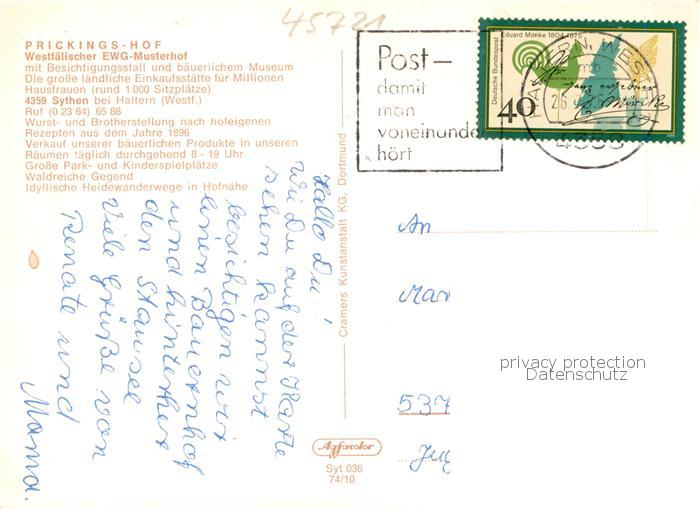 45721
PRICKINGS-HOF
Westfälischer EWG-Musterhof
mit Besichtigungsstall und bäuerlichem Museum
Die große ländliche Einkaufsstätte für Millionen
Hausfrauen (rund 1 000 Sitzplätze)
4359 Sythen bei Haltern (Westf.)
Ruf (0 23 64) 65 88
Wurst- und Brotherstellung nach hofeigenen
Rezepten aus dem Jahre 1896
Verkauf unserer bäuerlichen Produkte in unseren
Räumen täglich durchgehend 8 - 19 Uhr
Große Park- und Kinderspielplätze
Waldreiche Gegend
Idyllische Heidewanderwege in Hofnähe
Hallo Du!
Wie Du auf der Karte
sehen kannst
besichtigen wir
einen Bauernhof
und hinterher
den Stausee
Viele Grüße von
Renate und
Mama.
Cramers Kunstanstalt KG, Dortmund
Agfacolor
Syt 036
74/10
Post-
damit
man
voneinander
hört
Eduard Mörike 1804-1875
Deutsche Bundespost
40
An
Mar
537
privacy protection
Datenschutz